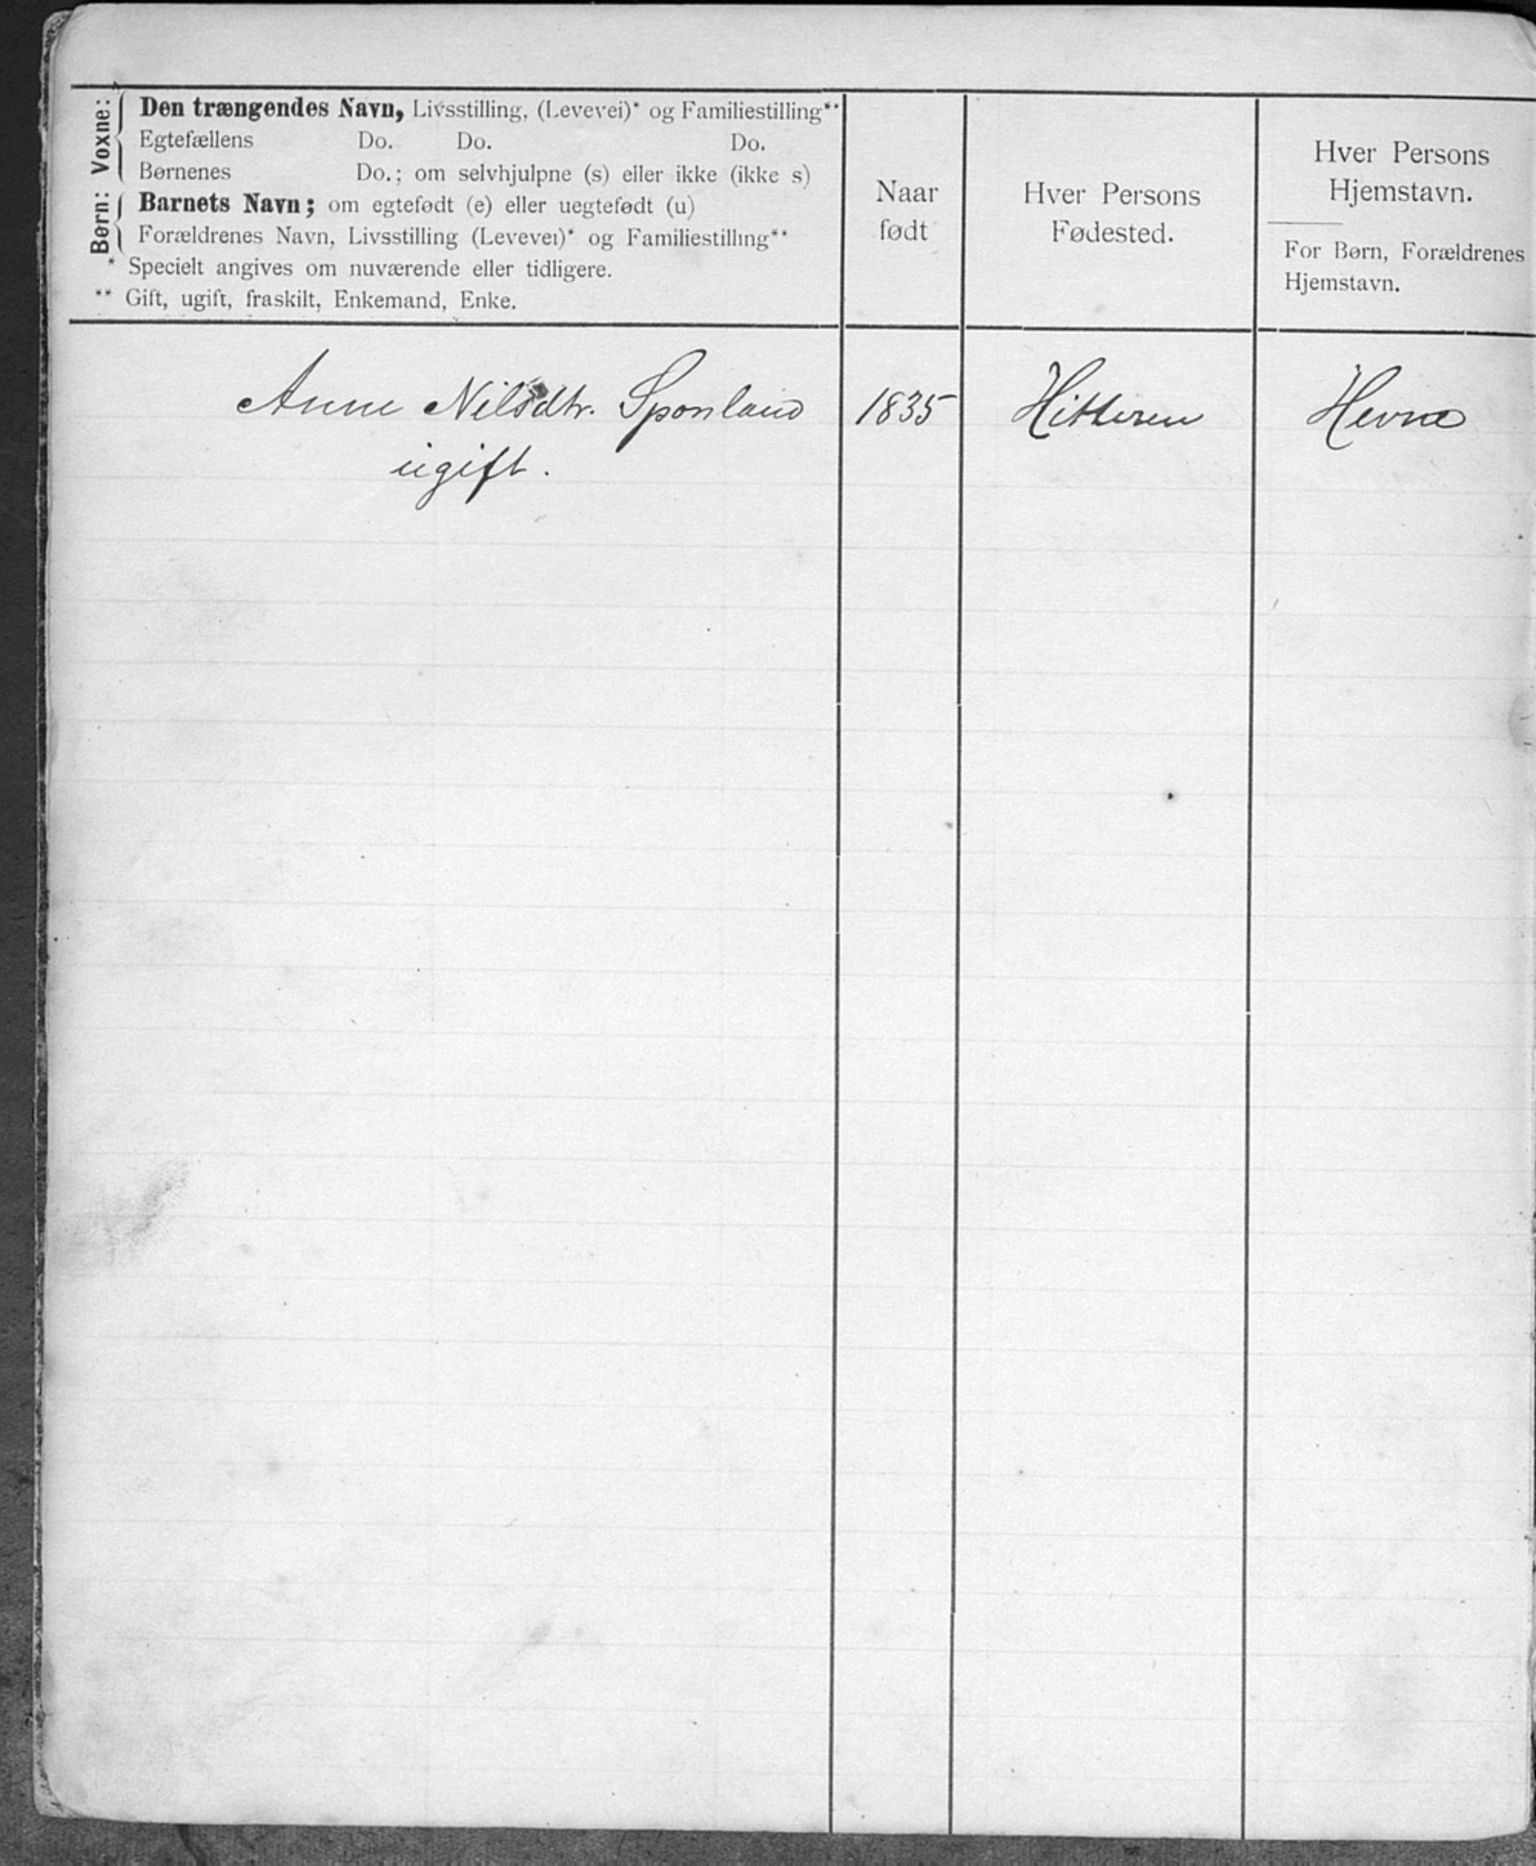 Voxne:
Den trængendes Navn, Livsstilling, (Levevei)* og Familiestilling**
Egtefællens Do. Do. Do.
Børnenes Do.; om selvhjulpne (s) eller ikke (ikke s)
Børn:
Barnets Navn; om egtefødt (e) eller uegtefødt (u)
Forældrenes Navn, Livsstilling (Levevei)* og Familiestilling**
* Specielt angives om nuværende eller tidligere.
** Gift, ugift, fraskilt, Enkemand, Enke.
Naar
født
Hver Persons
Fødested.
Hver Persons
Hjemstavn.
For Børn, Forældrenes
Hjemstavn.
Anne Nilsdtr. Sponland
ugift.
1835
Hitteren
Hevne